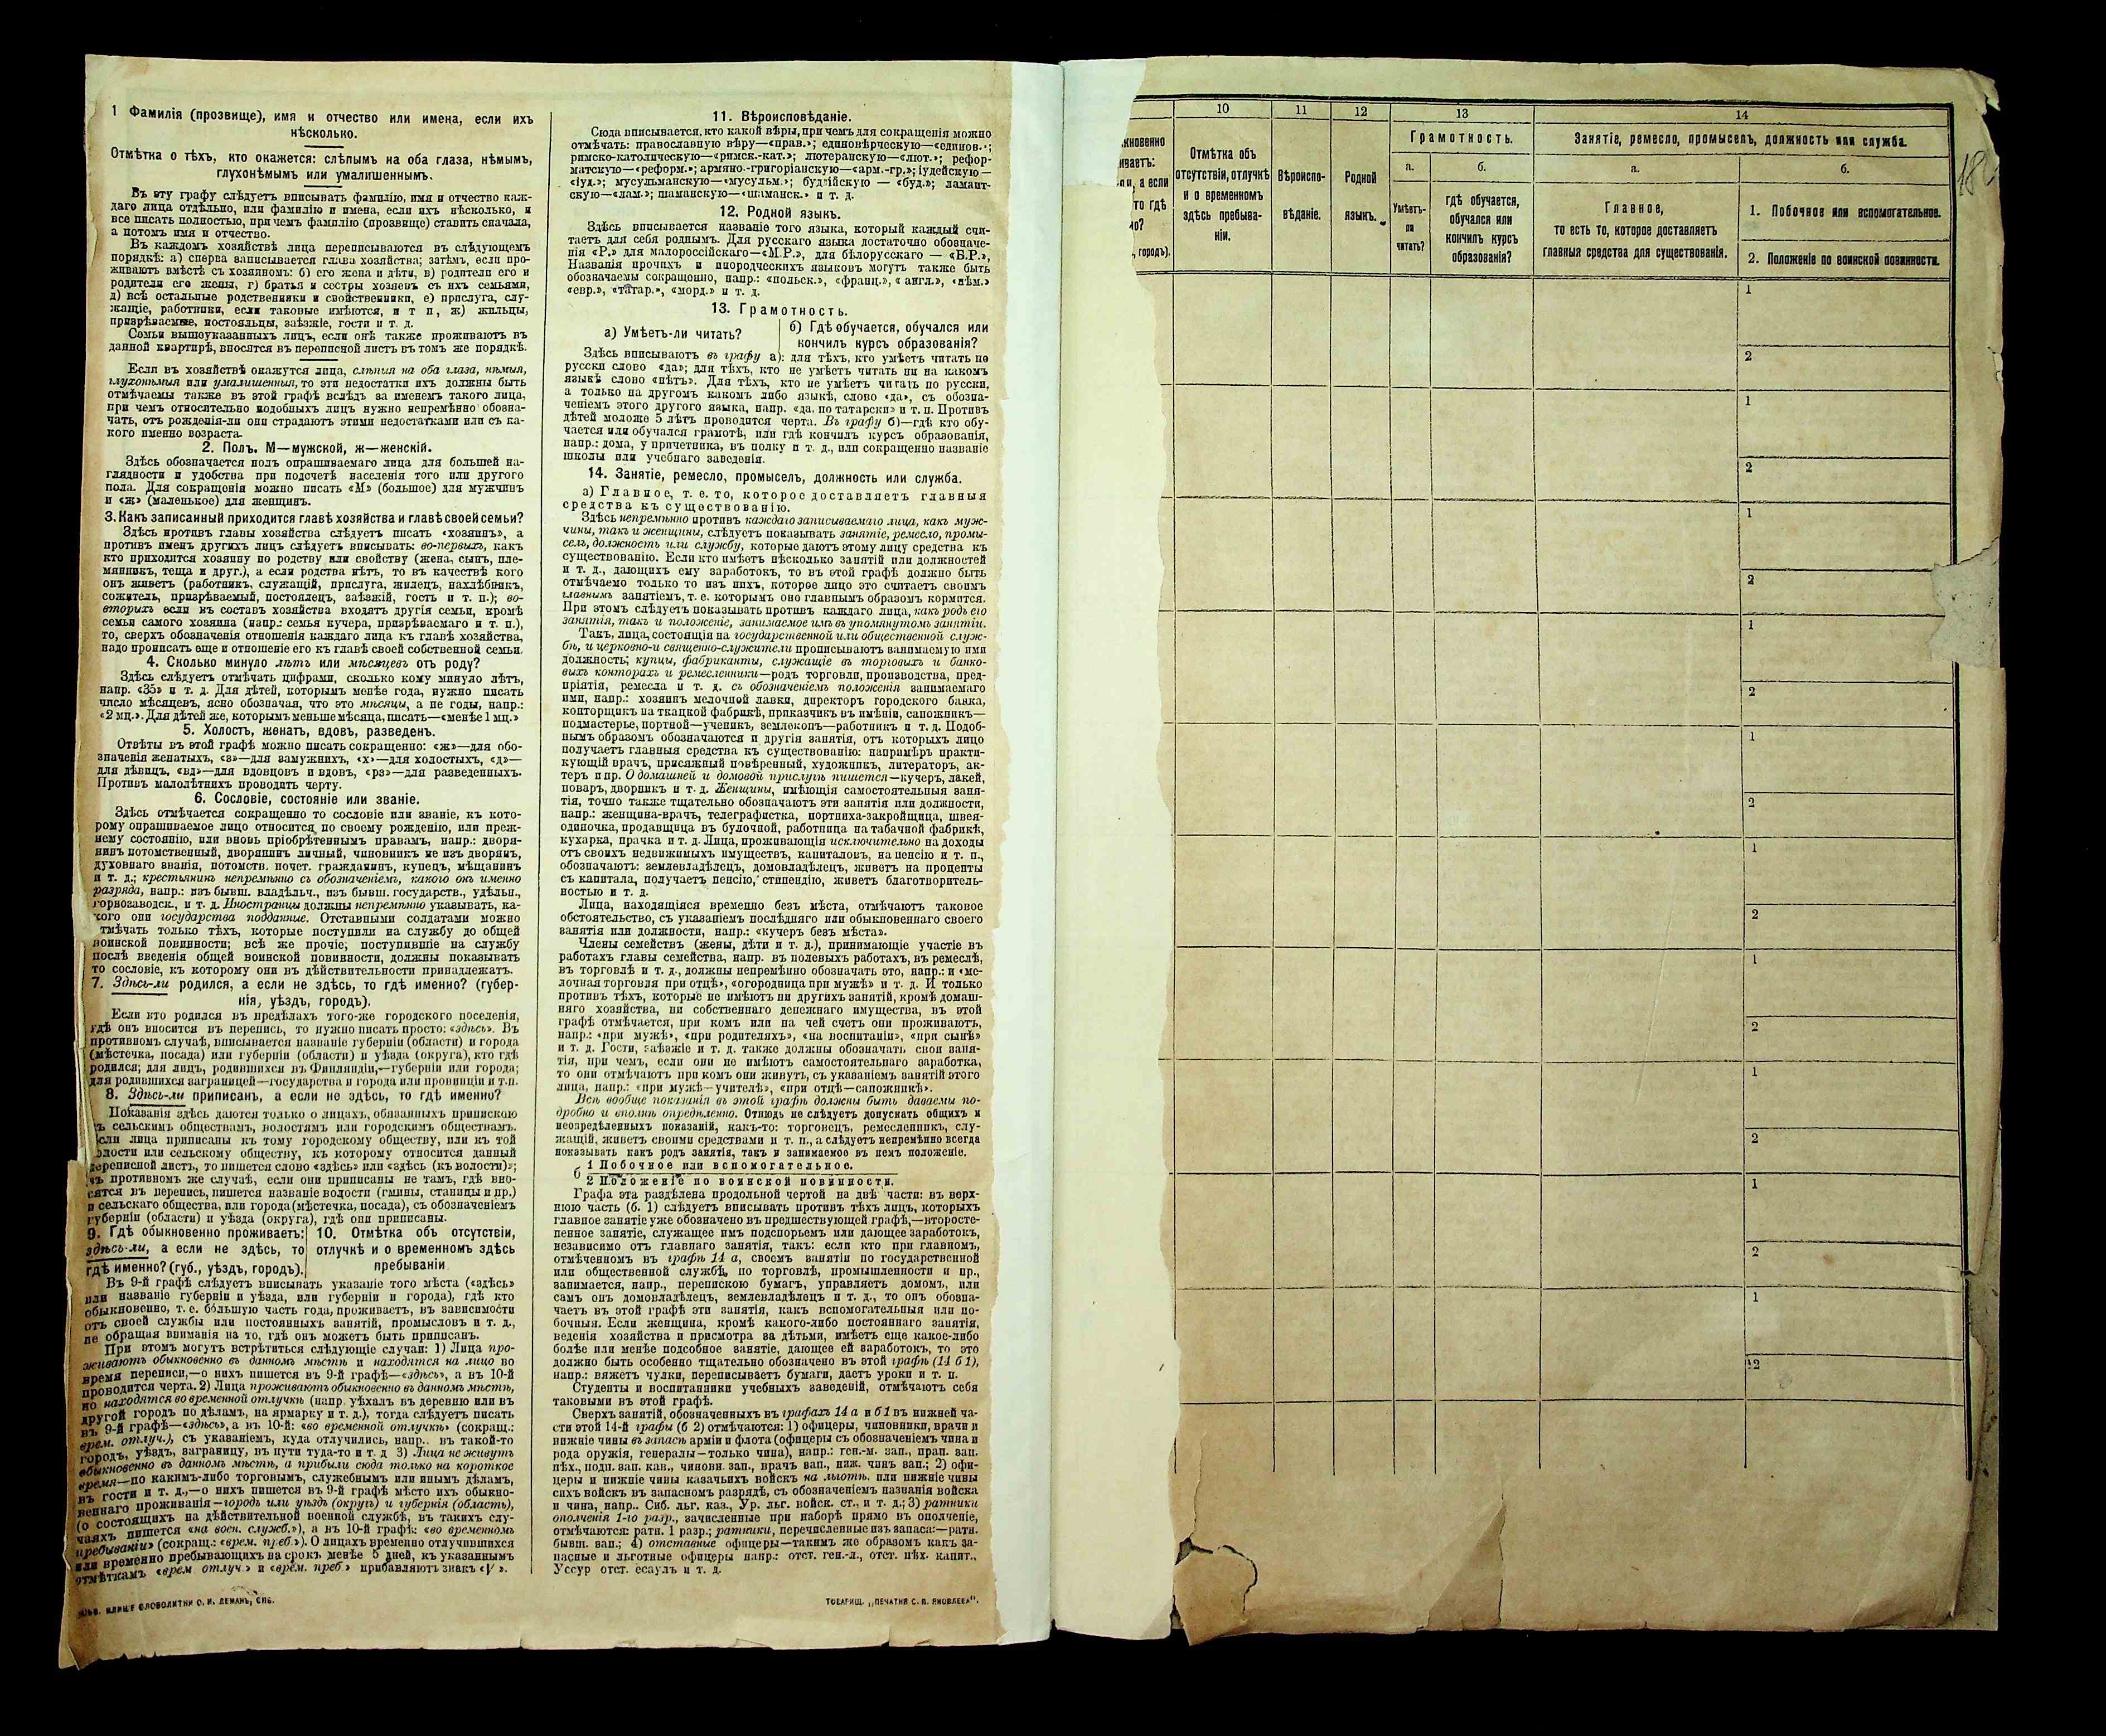 1 Фамилія (прозвище), имя и отчество или имена, если ихъ
нѣсколько.
Отмѣтка о тѣхъ, кто окажется: слѣпымъ на оба глаза, нѣмымъ,
глухонѣмымъ или умалишеннымъ.
Въ эту графу слѣдуетъ вписывать фамилію, имя и отчество каж-
даго лица отдѣльно, или фамилію и имена, если ихъ нѣсколько, и
все писать полностью, при чемъ фамилію (прозвище) ставить сначала,
а потомъ имя и отчество.
Въ каждомъ хозяйствѣ лица переписываются въ слѣдующемъ
порядкѣ: а) сперва записывается глава хозяйства; затѣмъ, если про-
живаютъ вмѣстѣ съ хозяиномъ: б) его жена и дѣти, в) родители его и
родители его жены, г) братья и сестры хозяевъ съ ихъ семьями,
д) всѣ остальные родственники и свойственники, е) прислуга, слу-
жащіе, работники, если таковые имѣются, и т п, ж) жильцы,
призрѣваемые, постояльцы, заѣзжіе, гости и т. д.
Семьи вышоуказанныхъ лицъ, если онѣ также проживаютъ въ
данной квартирѣ, вносятся въ переписной листъ въ томъ же порядкѣ.
Если въ хозяйствѣ окажутся лица, слѣпыя на оба глаза, нѣмыя,
глухонѣмыя или умалишенныя, то эти недостатки ихъ должны быть
отмѣчаемы также въ этой графѣ вслѣдъ за именемъ такого лица,
при чемъ относительно подобныхъ лицъ нужно непремѣнно обозна-
чать, отъ рожденія-ли они страдаютъ этими недостатками или съ ка-
кого именно возраста.
2. Полъ. М—мужской, ж—женскій.
Здѣсь обозначается полъ опрашиваемаго лица для большей на-
глядности и удобства при подсчетѣ населенія того или другого
пола. Для сокращенія можно писать «М» (большое) для мужчинъ
и «ж» (маленькое) для женщинъ.
3. Какъ записанный приходится главѣ хозяйства и главѣ своей семьи?
Здѣсь противъ главы хозяйства слѣдуетъ писать «хозяинъ», а
противъ именъ другихъ лицъ слѣдуетъ вписывать: во-первыхъ, какъ
кто приходится хозяину по родству или свойству (жена, сынъ, пле-
мянникъ, теща и друг.), а если родства нѣтъ, то въ качествѣ кого
онъ живетъ (работникъ, служащій, прислуга, жилецъ, нахлѣбникъ,
сожитель, призрѣваемый, постоялецъ, заѣзжій, гость и т. п.); во-
вторыхъ если въ составъ хозяйства входятъ другія семьи, кромѣ
семьи самого хозяина (напр.: семья кучера, призрѣваемаго и т. п.),
то, сверхъ обозначенія отношенія каждаго лица къ главѣ хозяйства,
надо прописать еще и отношеніе его къ главѣ своей собственной семьи.
4. Сколько минуло лѣтъ или мѣсяцевъ отъ роду?
Здѣсь слѣдуетъ отмѣчать цифрами, сколько кому минуло лѣтъ,
напр. «35» и т. д. Для дѣтей, которымъ менѣе года, нужно писать
число мѣсяцевъ, ясно обозначая, что это мѣсяцы, а не годы, напр.:
«2 мц.». Для дѣтей же, которымъ меньше мѣсяца, писать—«менѣе 1 мц.»
5. Холостъ, женатъ, вдовъ, разведенъ.
Отвѣты въ этой графѣ можно писать сокращенно: «ж»—для обо-
значенія женатыхъ, «з»—для замужнихъ, «х»—для холостыхъ, «д»—
для дѣвицъ, «вд»—для вдовцовъ и вдовъ, «рз»—для разведенныхъ.
Противъ малолѣтнихъ проводить черту.
6. Сословіе, состояніе или званіе.
Здѣсь отмѣчается сокращенно то сословіе или званіе, къ кото-
рому опрашиваемое лицо относится по своему рожденію, или преж-
нему состоянію, или вновь пріобрѣтеннымъ правамъ, напр.: дворя-
нинъ потомственный, дворянинъ личный, чиновникъ не изъ дворянъ,
духовнаго званія, потомств. почет. гражданинъ, купецъ, мѣщанинъ
и т. д.; крестьянинъ непремѣнно съ обозначеніемъ, какого онъ именно
разряда, напр.: изъ бывш. владѣльч., изъ бывш. государств., удѣльн.,
горнозаводск., и т. д. Иностранцы должны непремѣнно указывать, ка-
кого они государства подданные. Отставными солдатами можно
отмѣчать только тѣхъ, которые поступили на службу до общей
воинской повинности; всѣ же прочіе, поступившіе на службу
послѣ введенія общей воинской повинности, должны показывать
то сословіе, къ которому они въ дѣйствительности принадлежатъ.
7. Здѣсь-ли родился, а если не здѣсь, то гдѣ именно? (губер-
нія, уѣздъ, городъ).
Если кто родился въ предѣлахъ того-же городского поселенія,
гдѣ онъ вносится въ перепись, то нужно писать просто: «здѣсь». Въ
противномъ случаѣ, вписывается названіе губерніи (области) и города
(мѣстечка, посада) или губерніи (области) и уѣзда (округа), кто гдѣ
родился; для лицъ, родившихся въ Финляндіи,—губерніи или города;
для родившихся заграницей—государства и города или провинціи и т.п.
8. Здѣсь-ли приписанъ, а если не здѣсь, то гдѣ именно?
Показанія здѣсь даются только о лицахъ, обязанныхъ припискою
къ сельскимъ обществамъ, волостямъ или городскимъ обществамъ.
Если лица приписаны къ тому городскому обществу, или къ той
волости или сельскому обществу, къ которому относится данный
переписной листъ, то пишется слово «здѣсь» или «здѣсь (къ волости)»;
въ противномъ же случаѣ, если они приписаны не тамъ, гдѣ вно-
сятся въ перепись, пишется названіе волости (гмины, станицы и пр.)
и сельскаго общества, или города (мѣстечка, посада), съ обозначеніемъ
губерніи (области) и уѣзда (округа), гдѣ они приписаны.
9. Гдѣ обыкновенно проживаетъ:
здѣсь-ли, а если не здѣсь, то
гдѣ именно? (губ., уѣздъ, городъ).
10. Отмѣтка объ отсутствіи,
отлучкѣ и о временномъ здѣсь
пребываніи
Въ 9-й графѣ слѣдуетъ вписывать указаніе того мѣста («здѣсь»
или названіе губерніи и уѣзда, или губерніи и города), гдѣ кто
обыкновенно, т. е. бо́льшую часть года, проживаетъ, въ зависимости
отъ своей службы или постоянныхъ занятій, промысловъ и т. д.,
не обращая вниманія на то, гдѣ онъ можетъ быть приписанъ.
При этомъ могутъ встрѣтиться слѣдующіе случаи: 1) Лица про-
живаютъ обыкновенно въ данномъ мѣстѣ и находятся на лицо во
время переписи,—о нихъ пишется въ 9-й графѣ—«здѣсь», а въ 10-й
проводится черта. 2) Лица проживаютъ обыкновенно въ данномъ мѣстѣ,
но находятся во временной отлучкѣ (напр уѣхалъ въ деревню или въ
другой городъ по дѣламъ, на ярмарку и т. д.), тогда слѣдуетъ писать
въ 9-й графѣ—«здѣсь», а въ 10-й: «во временной отлучкѣ» (сокращ.:
врем. отлуч.), съ указаніемъ, куда отлучились, напр.. въ такой-то
городъ, уѣздъ, заграницу, въ пути туда-то и т. д 3) Лица не живутъ
обыкновенно въ данномъ мѣстѣ, а прибыли сюда только на короткое
время—по какимъ-либо торговымъ, служебнымъ или инымъ дѣламъ,
въ гости и т. д.,—о нихъ пишется въ 9-й графѣ мѣсто ихъ обыкно-
веннаго проживанія—городъ или уѣздъ (округъ) и губернія (область),
(о состоящихъ на дѣйствительной военной службѣ, въ такихъ слу-
чаяхъ пишется «на воен. служб.»), а въ 10-й графѣ: «во временномъ
пребываніи» (сокращ.: «врем. преб.»). О лицахъ временно отлучившихся
или временно пребывающихъ на срокъ менѣе 5 дней, къ указаннымъ
отмѣткамъ «врем отлуч.» и «врем. преб» прибавляютъ знакъ «V».
СЛОВОЛИТНИ О. И. ЛЕМАНЪ, СПБ.
11. Вѣроисповѣданіе.
Сюда вписывается, кто какой вѣры, при чемъ для сокращенія можно
отмѣчать: православную вѣру—«прав.»; единовѣрческую—«единов.»;
римско-католическую—«римск.-кат.»; лютеранскую—«лют.»; рефор-
матскую—«реформ.»; армяно-григоріанскую—«арм.-гр.»; іудейскую—
«іуд.»; мусульманскую—«мусульм.»; буддійскую — «буд.»; ламаит-
скую—«лам.»; шаманскую—«шаманск.» и т. д.
12. Родной языкъ.
Здѣсь вписывается названіе того языка, который каждый счи-
таетъ для себя роднымъ. Для русскаго языка достаточно обозначе-
нія «Р.» для малороссійскаго—«М.Р.», для бѣлорусскаго — «Б.Р.»,
Названія прочихъ и инородческихъ языковъ могутъ также быть
обозначаемы сокращенно, напр.: «польск.», «франц.», «англ.», «нѣм.»
«евр.», «татар.», «морд.» и т. д.
13. Грамотность.
а) Умѣетъ-ли читать?
б) Гдѣ обучается, обучался или
кончилъ курсъ образованія?
Здѣсь вписываютъ въ графу а): для тѣхъ, кто умѣетъ читать по
русски слово «да»; для тѣхъ, кто не умѣетъ читать ни на какомъ
языкѣ слово «нѣтъ». Для тѣхъ, кто не умѣетъ читать по русски,
а только на другомъ какомъ либо языкѣ, слово «да», съ обозна-
ченіемъ этого другого языка, напр. «да, по татарски» и т. п. Противъ
дѣтей моложе 5 лѣтъ проводится черта. Въ графу б)—гдѣ кто обу-
чается или обучался грамотѣ, или гдѣ кончилъ курсъ образованія,
напр.: дома, у причетника, въ полку и т. д., или сокращенно названіе
школы или учебнаго заведенія.
14. Занятіе, ремесло, промыселъ, должность или служба.
а) Главное, т. е. то, которое доставляетъ главныя
средства къ существованію.
Здѣсь непремѣнно противъ каждаго записываемаго лица, какъ муж-
чины, такъ и женщины, слѣдуетъ показывать занятіе, ремесло, промы-
селъ, должность или службу, которые даютъ этому лицу средства къ
существованію. Если кто имѣетъ нѣсколько занятій или должностей
и т. д., дающихъ ему заработокъ, то въ этой графѣ должно быть
отмѣчаемо только то изъ нихъ, которое лицо это считаетъ своимъ
главнымъ занятіемъ, т. е. которымъ оно главнымъ образомъ кормится.
При этомъ слѣдуетъ показывать противъ каждаго лица, какъ родъ его
занятія, такъ и положеніе, занимаемое имъ въ упомянутомъ занятіи.
Такъ, лица, состоящія на государственной или общественной служ-
бѣ, и церковно-и священно-служители прописываютъ занимаемую ими
должность; купцы, фабриканты, служащіе въ торговыхъ и банко-
выхъ конторахъ и ремесленники—родъ торговли, производства, пред-
пріятія, ремесла и т. д. съ обозначеніемъ положенія занимаемаго
ими, напр.: хозяинъ мелочной лавки, директоръ городского банка,
конторщикъ на ткацкой фабрикѣ, приказчикъ въ имѣніи, сапожникъ—
подмастерье, портной—ученикъ, землекопъ—работникъ и т. д. Подоб-
нымъ образомъ обозначаются и другія занятія, отъ которыхъ лицо
получаетъ главныя средства къ существованію: напримѣръ практи-
кующій врачъ, присяжный повѣренный, художникъ, литераторъ, ак-
теръ и пр. О домашней и домовой прислугѣ пишется—кучеръ, лакей,
поваръ, дворникъ и т. д. Женщины, имѣющія самостоятельныя заня-
тія, точно также тщательно обозначаютъ эти занятія или должности,
напр.: женщина-врачъ, телеграфистка, портниха-закройщица, швея-
одиночка, продавщица въ булочной, работница на табачной фабрикѣ,
кухарка, прачка и т. д. Лица, проживающія исключительно на доходы
отъ своихъ недвижимыхъ имуществъ, капиталовъ, на пенсію и т. п.,
обозначаютъ: землевладѣлецъ, домовладѣлецъ, живетъ на проценты
съ капитала, получаетъ пенсію, стипендію, живетъ благотворитель-
ностью и т. д.
Лица, находящіяся временно безъ мѣста, отмѣчаютъ таковое
обстоятельство, съ указаніемъ послѣдняго или обыкновеннаго своего
занятія или должности, напр.: «кучеръ безъ мѣста».
Члены семействъ (жены, дѣти и т. д.), принимающіе участіе въ
работахъ главы семейства, напр. въ полевыхъ работахъ, въ ремеслѣ,
въ торговлѣ и т. д., должны непремѣнно обозначать это, напр.: и «ме-
лочная торговля при отцѣ», «огородница при мужѣ» и т. д. И только
противъ тѣхъ, которые не имѣютъ ни другихъ занятій, кромѣ домаш-
няго хозяйства, ни собственнаго денежнаго имущества, въ этой
графѣ отмѣчается, при комъ или на чей счетъ они проживаютъ,
напр.: «при мужѣ», «при родителяхъ», «на воспитаніи», «при сынѣ»
и т. д. Гости, заѣзжіе и т. д. также должны обозначать свои заня-
тія, при чемъ, если они не имѣютъ самостоятельнаго заработка,
то они отмѣчаютъ при комъ они живутъ, съ указаніемъ занятій этого
лица, напр.: «при мужѣ—учителѣ», «при отцѣ—сапожникѣ».
Всѣ вообще показанія въ этой графѣ должны быть даваемы по-
дробно и вполнѣ опредѣленно. Отнюдь не слѣдуетъ допускать общихъ и
неопредѣленныхъ показаній, какъ-то: торговецъ, ремесленникъ, слу-
жащій, живетъ своими средствами и т. п., а слѣдуетъ непремѣнно всегда
показывать какъ родъ занятія, такъ и занимаемое въ немъ положеніе.
б 1 Побочное или вспомогательное.
2 Положеніе по воинской повинности.
Графа эта раздѣлена продольной чертой на двѣ части: въ верх-
нюю часть (б. 1) слѣдуетъ вписывать противъ тѣхъ лицъ, которыхъ
главное занятіе уже обозначено въ предшествующей графѣ,—второсте-
пенное занятіе, служащее имъ подспорьемъ или дающее заработокъ,
независимо отъ главнаго занятія, такъ: если кто при главномъ,
отмѣченномъ въ графѣ 14 а, своемъ занятіи по государственной
или общественной службѣ, по торговлѣ, промышленности и пр.,
занимается, напр., перепискою бумагъ, управляетъ домомъ, или
самъ онъ домовладѣлецъ, землевладѣлецъ и т. д., то онъ обозна-
чаетъ въ этой графѣ эти занятія, какъ вспомогательныя или по-
бочныя. Если женщина, кромѣ какого-либо постояннаго занятія,
веденія хозяйства и присмотра за дѣтьми, имѣетъ еще какое-либо
болѣе или менѣе подсобное занятіе, дающее ей заработокъ, то это
должно быть особенно тщательно обозначено въ этой графѣ (14 б 1),
напр.: вяжетъ чулки, переписываетъ бумаги, даетъ уроки и т. п.
Студенты и воспитанники учебныхъ заведеній, отмѣчаютъ себя
таковыми въ этой графѣ.
Сверхъ занятій, обозначенныхъ въ графахъ 14 а и б 1 въ нижней ча-
сти этой 14-й графы (б 2) отмѣчаются: 1) офицеры, чиновники, врачи и
нижніе чины въ запасѣ арміи и флота (офицеры съ обозначеніемъ чина и
рода оружія, генералы—только чина), напр.: ген.-м. зап., прап. зап.
пѣх., подп. зап. кав., чиновн. зап., врачъ зап., ниж. чинъ зап.; 2) офи-
церы и нижніе чины казачьихъ войскъ на льготѣ, или нижніе чины
сихъ войскъ въ запасномъ разрядѣ, съ обозначеніемъ названія войска
и чина, напр.. Сиб. льг. каз., Ур. льг. войск. ст., и т. д.; 3) ратники
ополченія 1-го разр., зачисленные при наборѣ прямо въ ополченіе,
отмѣчаются: ратн. 1 разр.; ратники, перечисленные изъ запаса:—ратн.
бывш. зап.; 4) отставные офицеры—такимъ же образомъ какъ за-
пасные и льготные офицеры напр.: отст. ген.-л., отст. пѣх. капит.,
Уссур отст. есаулъ и т. д.
ТОВАРИЩ. „ПЕЧАТНЯ С. П. ЯКОВЛЕВА“.
10 11 12 13 14
кновенно
иваетъ:
ли, а если
то гдѣ
но?
, городъ).
Отмѣтка объ
отсутствіи, отлучкѣ
и о временномъ
здѣсь пребыва-
ніи.
Вѣроиспо-
вѣданіе.
Родной
языкъ.
Грамотность.
а. б.
Умѣетъ-
ли
читать?
гдѣ обучается,
обучался или
кончилъ курсъ
образованія?
Занятіе, ремесло, промыселъ, должность или служба.
а. б.
Главное,
то есть то, которое доставляетъ
главныя средства для существованія.
1. Побочное или вспомогательное.
2. Положеніе по воинской повинности.
1
2
1
2
1
2
1
2
1
2
1
2
1
2
1
2
1
2
1
2